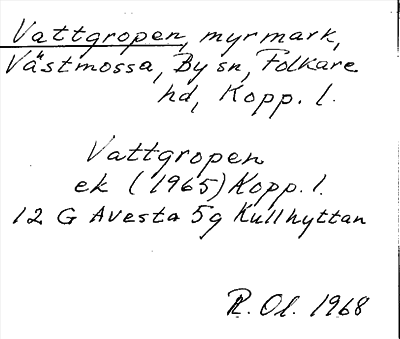 Vattgropen, myrmark,
Västmossa, By sn, Folkare
hd, Kopp. l.
Vattgropen
ek (1965) Kopp. l.
12 G Avesta 5g Kullhyttan
R. Ol. 1968